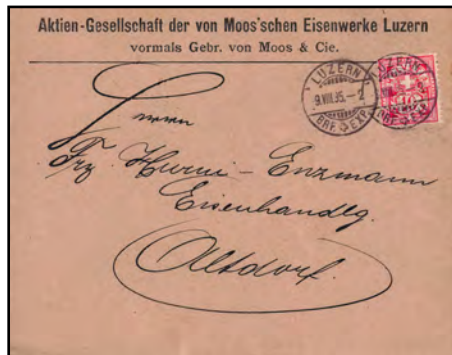 Aktien-Gesellschaft der von Moos'schen Eisenwerke Luzern
vormals Gebr. von Moos & Cie.
LUZERN
9.VIII.95.–2
BRF. EXP.
LUZERN
10
BRF. EXP.
Herrn
Frz. Hurni - Enzmann
Eisenhandlg.
Altdorf.